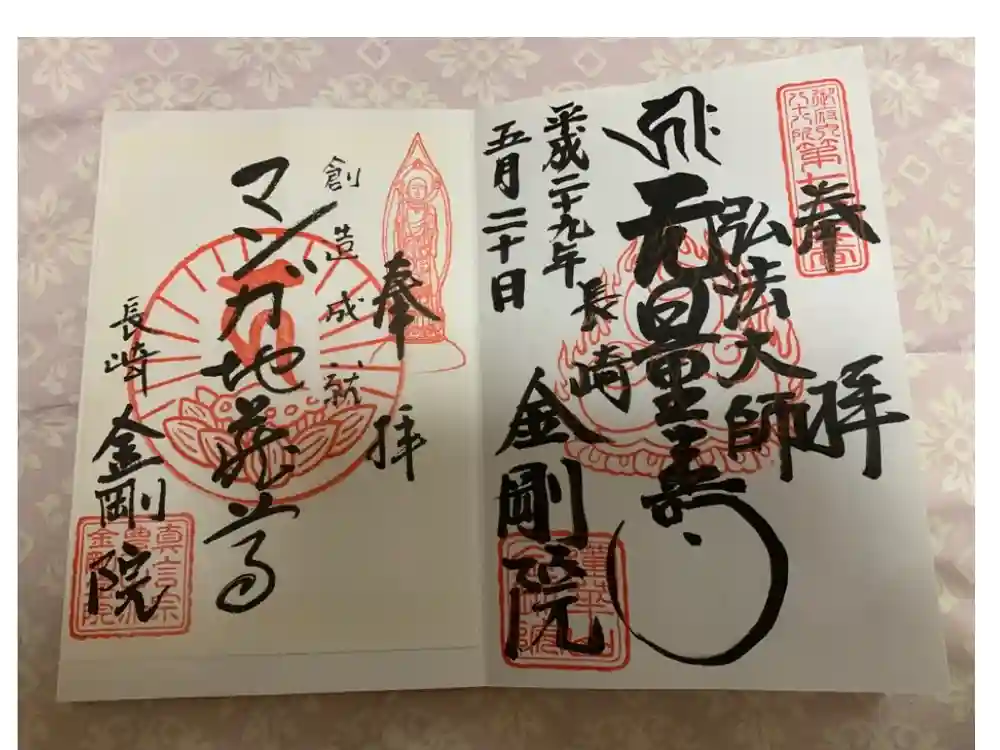 奉拝
弘法大師
无量寿
平成二十九年
五月二十日
長崎
金剛院
奉拝
創造成就
マンガ地蔵尊
長崎
金剛院